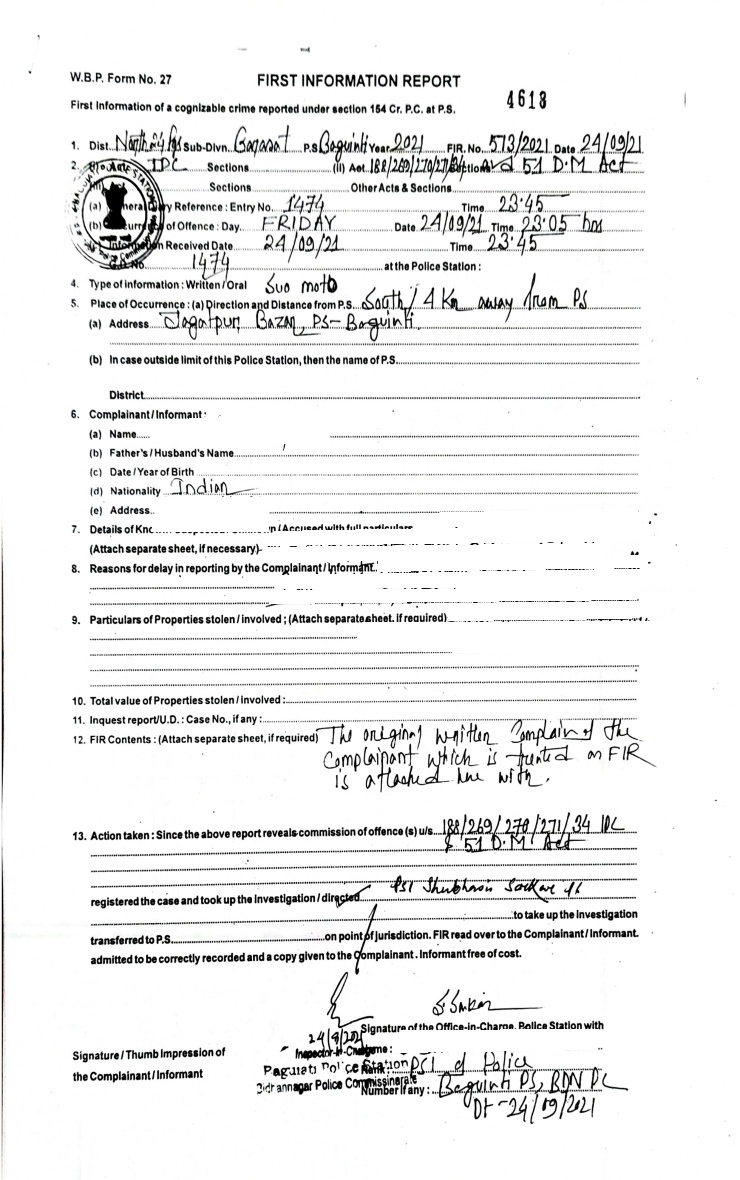 W.B.P. Form No. 27
FIRST INFORMATION REPORT
First Information of a cognizable crime reported under section 154 Cr. P.C. at P.S.
4613
1. Dist. North 24 Pgs Sub-Divn. Barasat P.S. Baguiati Year 2021 FIR. No. 573/2021 Date 24/09/21
2. IPC Sections (ii) Act. 188/269/270/271/34 and 51 D.M Act
Sections Other Acts & Sections
(a) General Diary Reference : Entry No. 1474 Time 23.45
(b) Occurrence of Offence : Day. FRIDAY Date 24/09/21 Time 23.05 hrs
Information Received Date 24/09/21 Time 23.45
1474 at the Police Station :
4. Type of information : Written / Oral Suo moto
5. Place of Occurrence : (a) Direction and Distance from P.S. South / 4 Km away from PS
(a) Address Jagatpur Bazar, PS- Baguiati.
(b) In case outside limit of this Police Station, then the name of P.S.
District
6. Complainant / Informant :
(a) Name
(b) Father's / Husband's Name
(c) Date / Year of Birth
(d) Nationality Indian
(e) Address..
7. Details of / Accused with full particulars
(Attach separate sheet, if necessary)-
8. Reasons for delay in reporting by the Complainant / Informant.
9. Particulars of Properties stolen / involved ; (Attach separate sheet. if required)
10. Total value of Properties stolen / involved :
11. Inquest report/U.D. : Case No., if any :
12. FIR Contents : (Attach separate sheet, if required) The original written Complain of the
Complainant which is treated as FIR
is attached here with.
13. Action taken : Since the above report reveals commission of offence (s) u/s. 188/269/270/271/34 IPC
& 51 D.M Act
registered the case and took up the Investigation / directed PSI
to take up the Investigation
transferred to P.S. on point of jurisdiction. FIR read over to the Complainant / Informant.
admitted to be correctly recorded and a copy given to the Complainant. Informant free of cost.
24/9/2021
Signature of the Office-in-Charge, Police Station with
Inspector-in-Charge
Signature / Thumb Impression of
the Complainant / Informant
Police Station PSI of Police
Police Commissionerate
Number if any : Baguiati PS, BDN PC
Dt - 24/09/2021